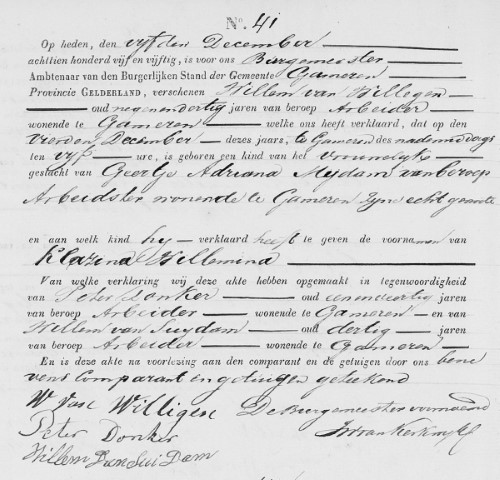 No. 41
Op heden, den vyfden December
achttien honderd vijf en vijftig, is voor ons Burgemeester
Ambtenaar van den Burgerlijken Stand der Gemeente Gameren
Provincie GELDERLAND, verschenen Willem van Willegen
oud negenendertig jaren van beroep Arbeider
wonende te Gameren welke ons heeft verklaard, dat op den
vierden December dezes jaars, te Gameren des nademiddags
ten vyf ure, is geboren een kind van het Vrouwelyke
geslacht van Geertje Adriana Mydam van beroep
Arbeidster wonende te Gameren zyne echtgenoote
en aan welk kind hy verklaard heeft te geven de voornamen van
Klazina Willemina
Van welke verklaring wij deze akte hebben opgemaakt in tegenwoordigheid
van Peter Donker oud eenenveertig jaren
van beroep Arbeider wonende te Gameren en van
Willem van Suydam oud dertig jaren
van beroep Arbeider wonende te Gameren
En is deze akte na voorlezing aan den comparant en de getuigen door ons bene
vens comparant en getuigen geteekend
W van Willigen De Burgemeester voornoemd
Peter Donker
Willem van Sui Dam